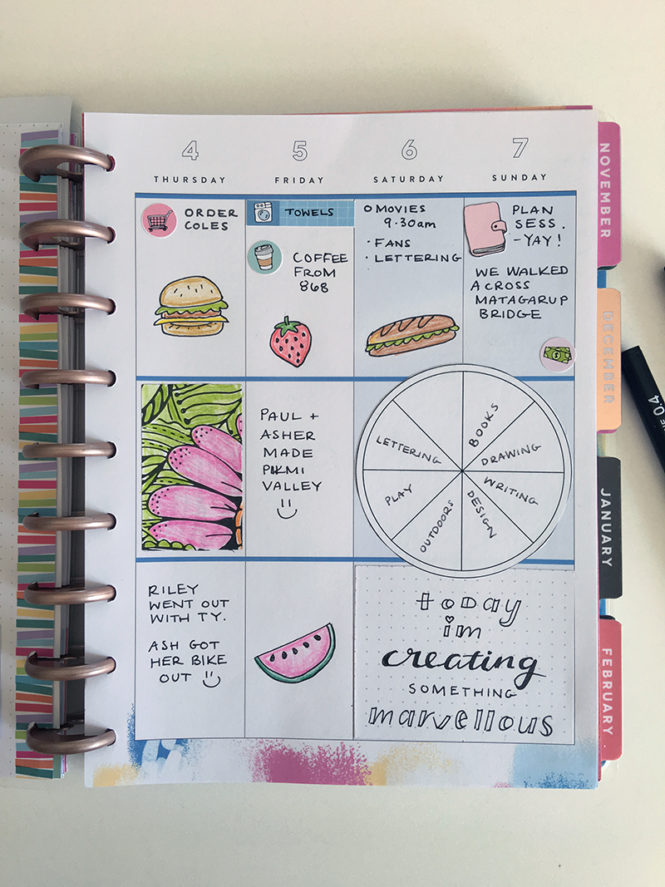 4
THURSDAY
5
FRIDAY
6
SATURDAY
7
SUNDAY
ORDER
COLES
TOWELS
COFFEE
FROM
868
MOVIES
9:30am
· FANS
· LETTERING
PLAN
SESS.
- YAY!
WE WALKED
ACROSS
MATAGARUP
BRIDGE
PAUL +
ASHER
MADE
PIKMI
VALLEY
BOOKS
DRAWING
WRITING
DESIGN
OUTDOORS
PLAY
LETTERING
RILEY
WENT OUT
WITH TY.
ASH GOT
HER BIKE
OUT
today
im
creating
SOMETHING
marvellous
NOVEMBER
DECEMBER
JANUARY
FEBRUARY
0.4